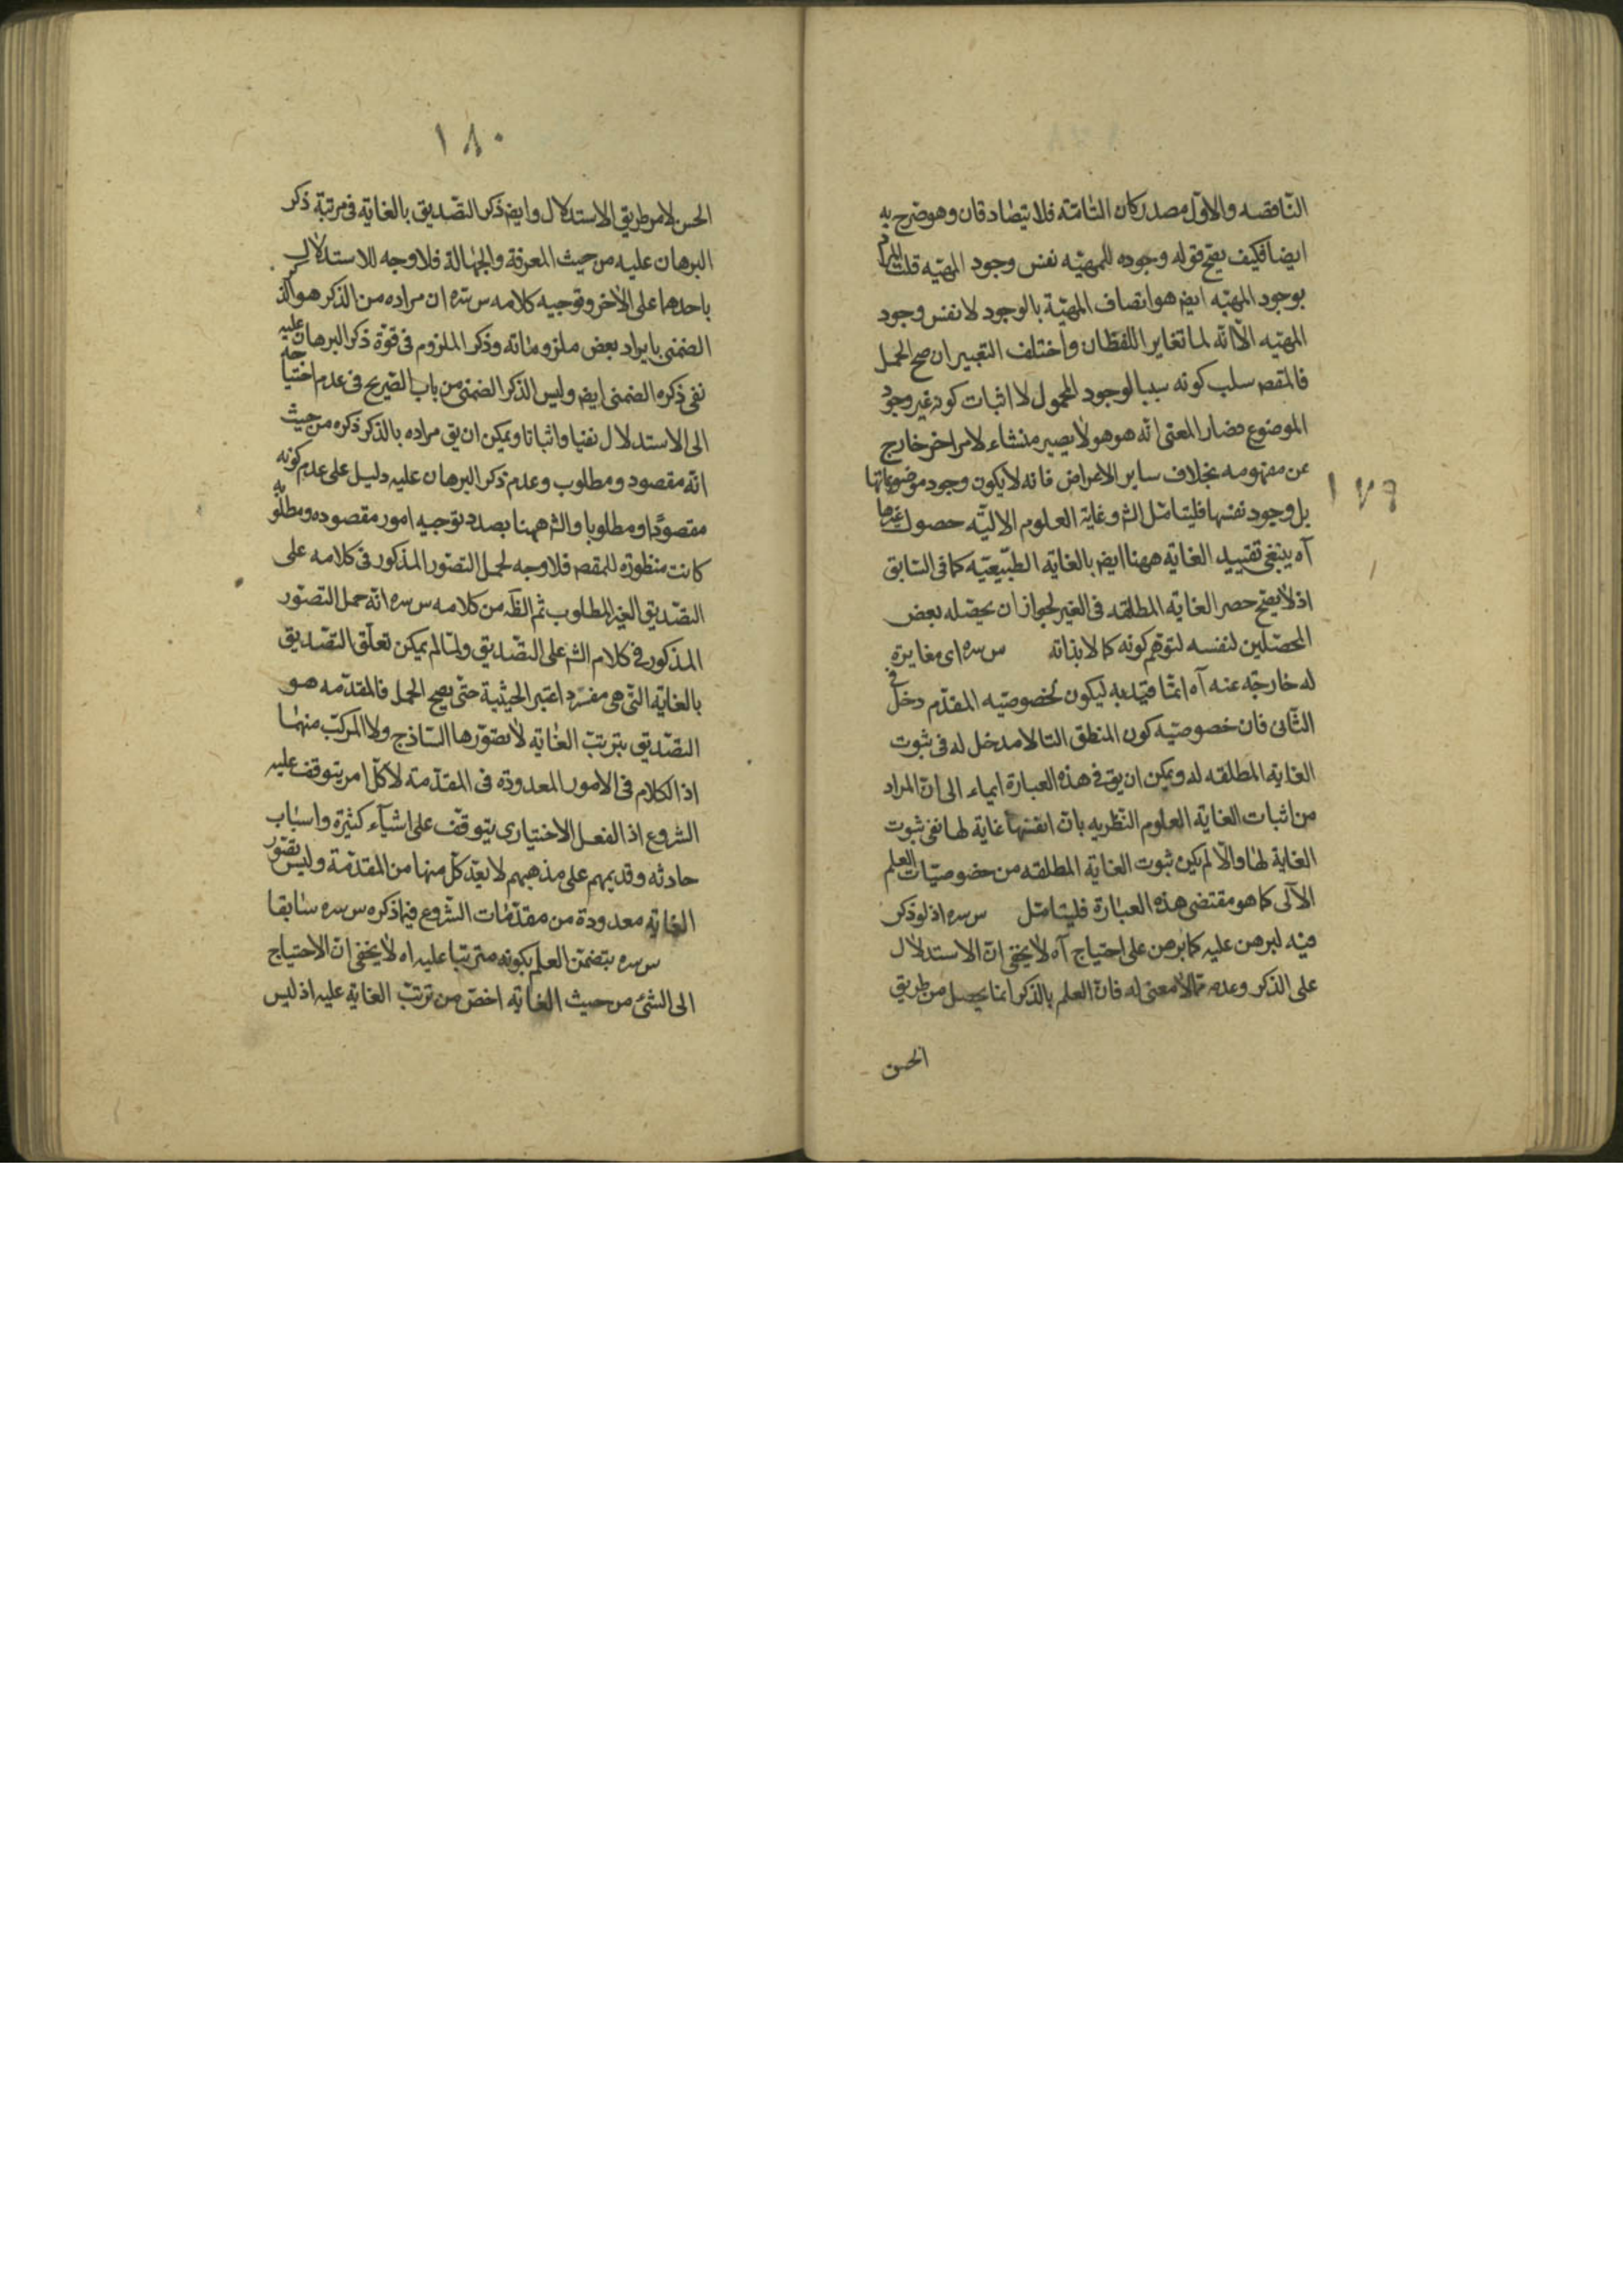 ١٧٩
الناقصه والاول مصدر كان التامّه فلا يتصادقان وهو صرح به
ايضا فكيف يصح قوله وجوده للمهيّه نفس وجود المهيّه قلت المراد
بوجود المهيّه ايضا هو اتصاف المهيّة بالوجود لا نفس وجود
المهيّه الا انّه لما تغاير اللفظان واختلف التعبير ان صح الحمل
فالمقصم سلب كونه سببا لوجود المحمول لا اثبات كونه غير وجود
الموضوع فصار المعنى انّه هو هو لا يصير منشاء لامر اخر خارج
عن مفهومه بخلاف ساير الاعراض فانه لا يكون وجود موضوعاتها
بل وجود نفسها فليتامّل الشم وغاية العلوم الاليّه حصول غيرها
آه ينبغى تقييد الغايه ههنا ايضا بالغايه الطبّيعيّه كما فى السّابق
اذ لا يصح حصر الغايه المطلقه فى الغير لجواز ان يحصّله بعض
المحصّلين لنفسه لتوهّم كونه كمالا بذاته س سره اى مغايرة
له خارجّه عنه آه انما قيّد به ليكون لخصوصيّه المقدّم دخل فى
الثّانى فان خصوصيّه كون المنطق التا لا مدخل له فى ثبوت
الغايه المطلقه له ويمكن ان يق فى هذه العبارة ايماء الى انّ المراد
من اثبات الغاية العلوم النّظريه بانّ انفسها غاية لها نفى ثبوت
الغاية لها والّا لم يكن ثبوت الغاية المطلقه من خصوصيّات العلم
الآلى كما هو مقتضى هذه العبارة فليتامّل س سره اذ لو ذكر
فيه لبرهن عليه كما برهن على احتياج آه لا يخفى انّ الاستدلال
على الذكر وعدمه ممّا لا معنى له فانّ العلم بالذكر انما يحصل من طريق
الحسن
١٨٠
الحسن لا من طريق الاستدلال وايضا ذكر التصّديق بالغايه فى مرتبة ذكر
البرهان عليه من حيث المعرفة والجهالة فلا وجه للاستدلال
باحدهما على الاخر وتوجيه كلامه س سره ان مراده من الذكر هو الذكر
الضمنى بايراد بعض ملزوماته وذكر الملزوم فى قوّة ذكر البرهان عليه
نفى ذكره الضمنى ايضا وليس الذكر الضمنى من باب الصّريح فى عدم احتياجه
الى الاستدلال نفيا واثباتا ويمكن ان يق مراده بالذكر ذكره من حيث
انّه مقصود ومطلوب وعدم ذكر البرهان عليه دليل على عدم كونه
مقصودًا ومطلوبا والشم ههنا بصدد توجيه امور مقصوده ومطلوبه
كانت منظورة للمقصم فلا وجه لحمل التصّور المذكور فى كلامه على
التصّديق الغير المطلوب ثم الظّه من كلامه س سره انّه حمل التصّور
المذكور فى كلام الشم على التصّديق ولمّا لم يمكن تعلّق التصّديق
بالغايه التى هى مفرد اعتبر الحيثية حتّى يصح الحمل فالمقدّمه هو
التصّديق بترتبّ الغايه لا تصوّرها السّاذج ولا المركّب منهما
اذ الكلام فى الامور المعدودة فى المقدّمة لا كلّ امر يتوقف عليه
الشروع اذ الفعل الاختيارى يتوقّف على اشيآء كثيرة واسباب
حادثه وقديمهم على مذهبهم لا يعدّ كلّ منها من المقدّمة وليس تصّور
الغايه معدودة من مقدّمات الشّروع فيما ذكره س سره سابقا
س سره يتضمّن العلم بكونه مترتبا عليه اه لا يخفى انّ الاحتياج
الى الشئ من حيث الغايه اخصّ من ترتبّ الغاية عليه اذ ليس